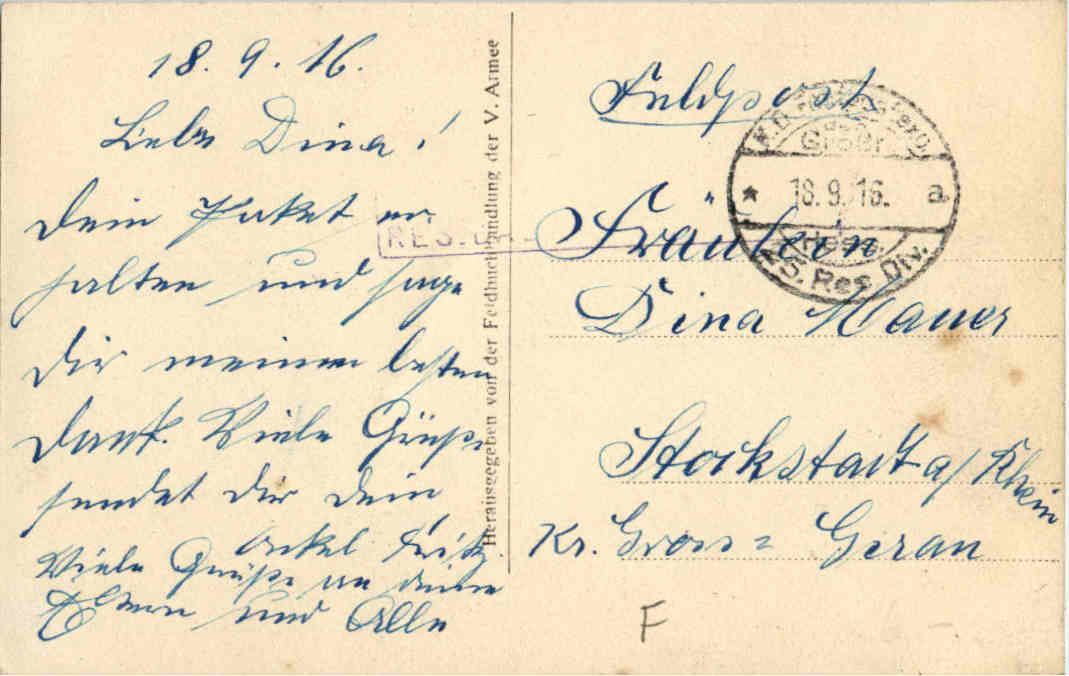 18. 9. 16.
Liebe Dina!
Dein Paket er-
halten und sage
dir meinen besten
Dank. Viele Grüße
sendet dir dein
Onkel Fritz
Viele Grüße an deine
Eltern und Alle
Herausgegeben von der Feldbuchhandlung der V. Armee
RES.
Feldpost
18.9.16. a
Hess.
25. Res. Div.
Fräulein
Dina Mauer
Stockstadt a/Rhein
Kr. Gross= Gerau
F